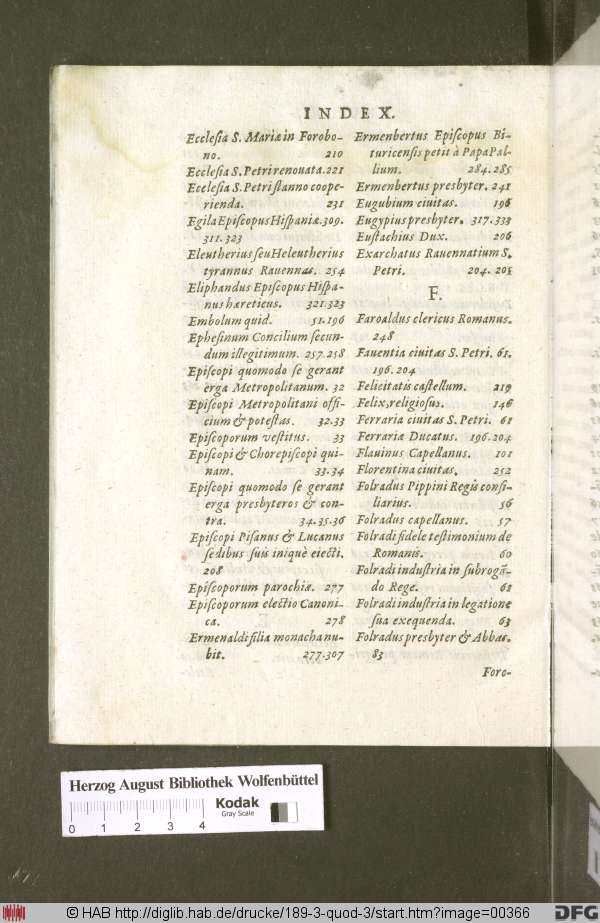 INDEX.
Ecclesia S. Mariæ in Forobo-
no. 210
Ecclesia S. Petri renouata. 221
Ecclesia S. Petri stanno coope-
rienda. 231
Egila Episcopus Hispaniæ. 309.
311.323
Eleutherius seu Heleutherius
tyrannus Rauennas. 254
Eliphandus Episcopus Hispa-
nus hæreticus. 321.323
Embolum quid. 51.196
Ephesinum Concilium secun-
dum illegitimum. 257.258
Episcopi quomodo se gerant
erga Metropolitanum. 32
Episcopi Metropolitani offi-
cium & potestas. 32.33
Episcoporum vestitus. 33
Episcopi & Chorepiscopi qui-
nam. 33.34
Episcopi quomodo se gerant
erga presbyteros & con-
tra. 34.35.36
Episcopi Pisanus & Lucanus
sedibus suis iniquè eiecti.
208
Episcoporum parochiæ. 277
Episcoporum electio Canoni-
ca. 278
Ermenaldi filia monacha nu-
bit. 277.307
Ermenbertus Episcopus Bi-
turicensis petit à Papa Pal-
lium. 284.285
Ermenbertus presbyter. 241
Eugubium ciuitas. 196
Eugypius presbyter. 317.333
Eustachius Dux. 206
Exarchatus Rauennatium S.
Petri. 204.205
F.
Faroaldus clericus Romanus.
248
Fauentia ciuitas S. Petri. 61.
196.204
Felicitatis castellum. 219
Felix, religiosus. 146
Ferraria ciuitas S. Petri. 61
Ferraria Ducatus. 196.204
Flauinus Capellanus. 101
Florentina ciuitas. 252
Folradus Pippini Regis consi-
liarius. 56
Folradus capellanus. 57
Folradi fidele testimonium de
Romanis. 60
Folradi industria in subrogā-
do Rege. 62
Folradi industria in legatione
sua exequenda. 63
Folradus presbyter & Abbas.
83
Foro-
Herzog August Bibliothek Wolfenbüttel
Kodak
Gray Scale
0 1 2 3 4
© HAB http://diglib.hab.de/drucke/189-3-quod-3/start.htm?image=00366
DFG